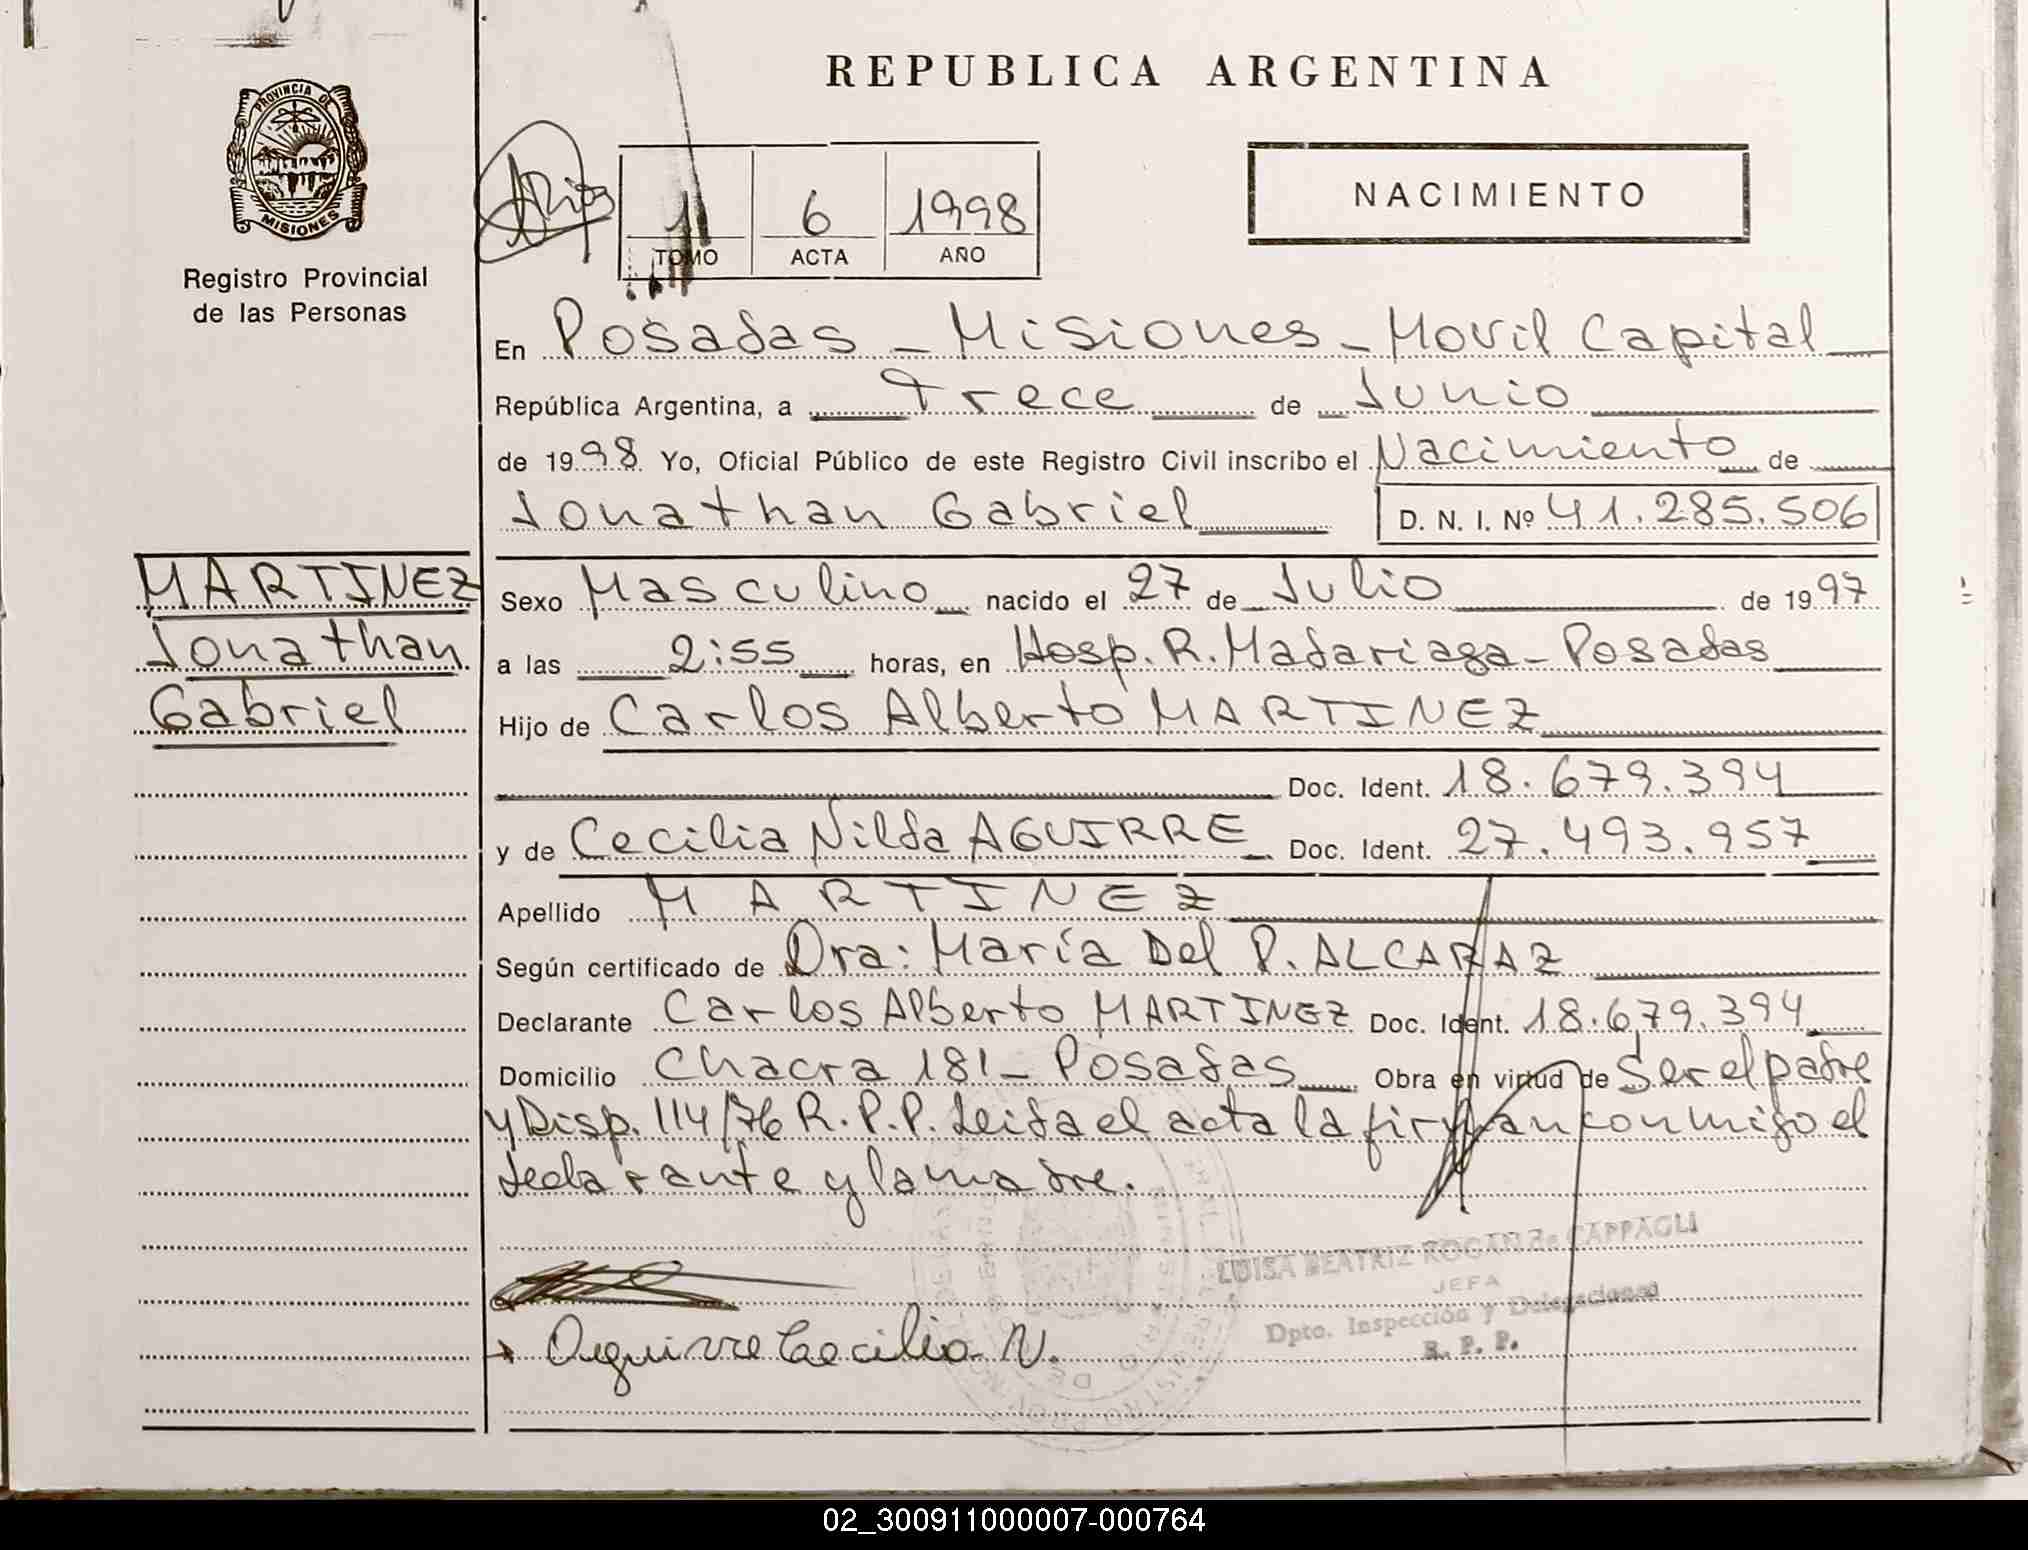 REPUBLICA ARGENTINA
PROVINCIA DE
MISIONES
Registro Provincial
de las Personas
ARios
1 6 1998
TOMO ACTA AÑO
NACIMIENTO
En Posadas - Misiones - Movil Capital
República Argentina, a Trece de Junio
de 1998 Yo, Oficial Público de este Registro Civil inscribo el Nacimiento de
Jonathan Gabriel D. N. I. Nº 41.285.506
MARTINEZ
Jonathan
Gabriel
Sexo Masculino nacido el 27 de Julio de 1997
a las 2:55 horas, en Hosp. R. Madariaga - Posadas
Hijo de Carlos Alberto MARTINEZ
Doc. Ident. 18.679.394
y de Cecilia Nilda AGUIRRE Doc. Ident. 27.493.957
Apellido MARTINEZ
Según certificado de Dra: María Del P. ALCARAZ
Declarante Carlos Alberto MARTINEZ Doc. Ident. 18.679.394
Domicilio Chacra 181 - Posadas Obra en virtud de Ser el padre
y Disp. 114/76 R.P.P. Leida el acta la firman conmigo el
declarante y la madre.
LUISA BEATRIZ ROGAN de CAPPAGLI
JEFA
Dpto. Inspección y Delegaciones
R. P. P.
Aguirre Cecilia N.
02_300911000007-000764